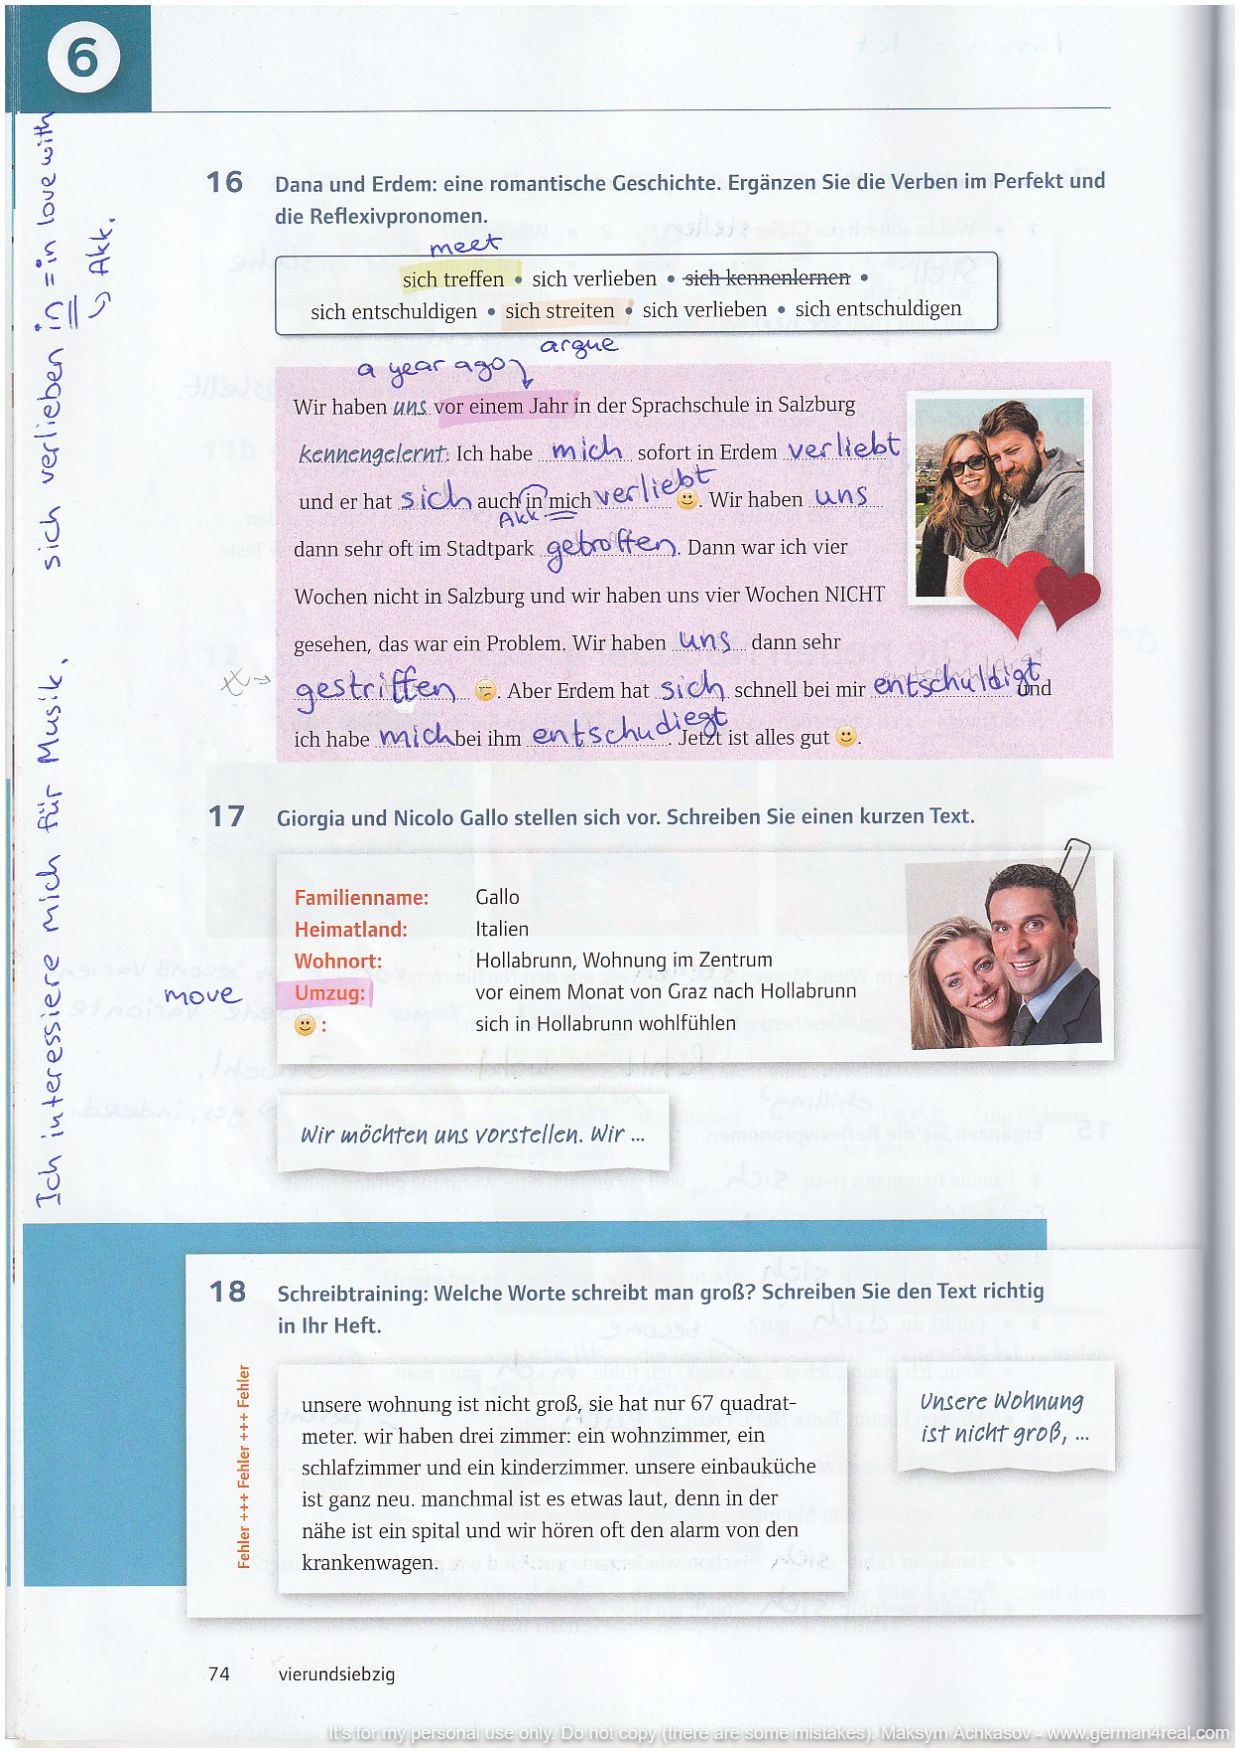 6
sich verlieben in = in love with
Akk.
Ich interessiere mich für Musik.
16 Dana und Erdem: eine romantische Geschichte. Ergänzen Sie die Verben im Perfekt und
die Reflexivpronomen.
meet
sich treffen • sich verlieben • sich kennenlernen •
sich entschuldigen • sich streiten • sich verlieben • sich entschuldigen
argue
a year ago
Wir haben uns vor einem Jahr in der Sprachschule in Salzburg
kennengelernt. Ich habe mich sofort in Erdem verliebt
und er hat sich auch in mich verliebt 🙂. Wir haben uns
Akk.
dann sehr oft im Stadtpark getroffen. Dann war ich vier
Wochen nicht in Salzburg und wir haben uns vier Wochen NICHT
gesehen, das war ein Problem. Wir haben uns dann sehr
gestriffen. Aber Erdem hat sich schnell bei mir entschuldigt und
ich habe mich bei ihm entschudiegt. Jetzt ist alles gut 🙂.
17 Giorgia und Nicolo Gallo stellen sich vor. Schreiben Sie einen kurzen Text.
Familienname: Gallo
Heimatland: Italien
Wohnort: Hollabrunn, Wohnung im Zentrum
move Umzug: vor einem Monat von Graz nach Hollabrunn
🙂: sich in Hollabrunn wohlfühlen
Wir möchten uns vorstellen. Wir ...
18 Schreibtraining: Welche Worte schreibt man groß? Schreiben Sie den Text richtig
in Ihr Heft.
Fehler +++ Fehler +++ Fehler
unsere wohnung ist nicht groß, sie hat nur 67 quadrat-
meter. wir haben drei zimmer: ein wohnzimmer, ein
schlafzimmer und ein kinderzimmer. unsere einbauküche
ist ganz neu. manchmal ist es etwas laut, denn in der
nähe ist ein spital und wir hören oft den alarm von den
krankenwagen.
Unsere Wohnung
ist nicht groß, ...
74 vierundsiebzig
It's for my personal use only. Do not copy (there are some mistakes). Maksym Achkasov - www.german4real.com